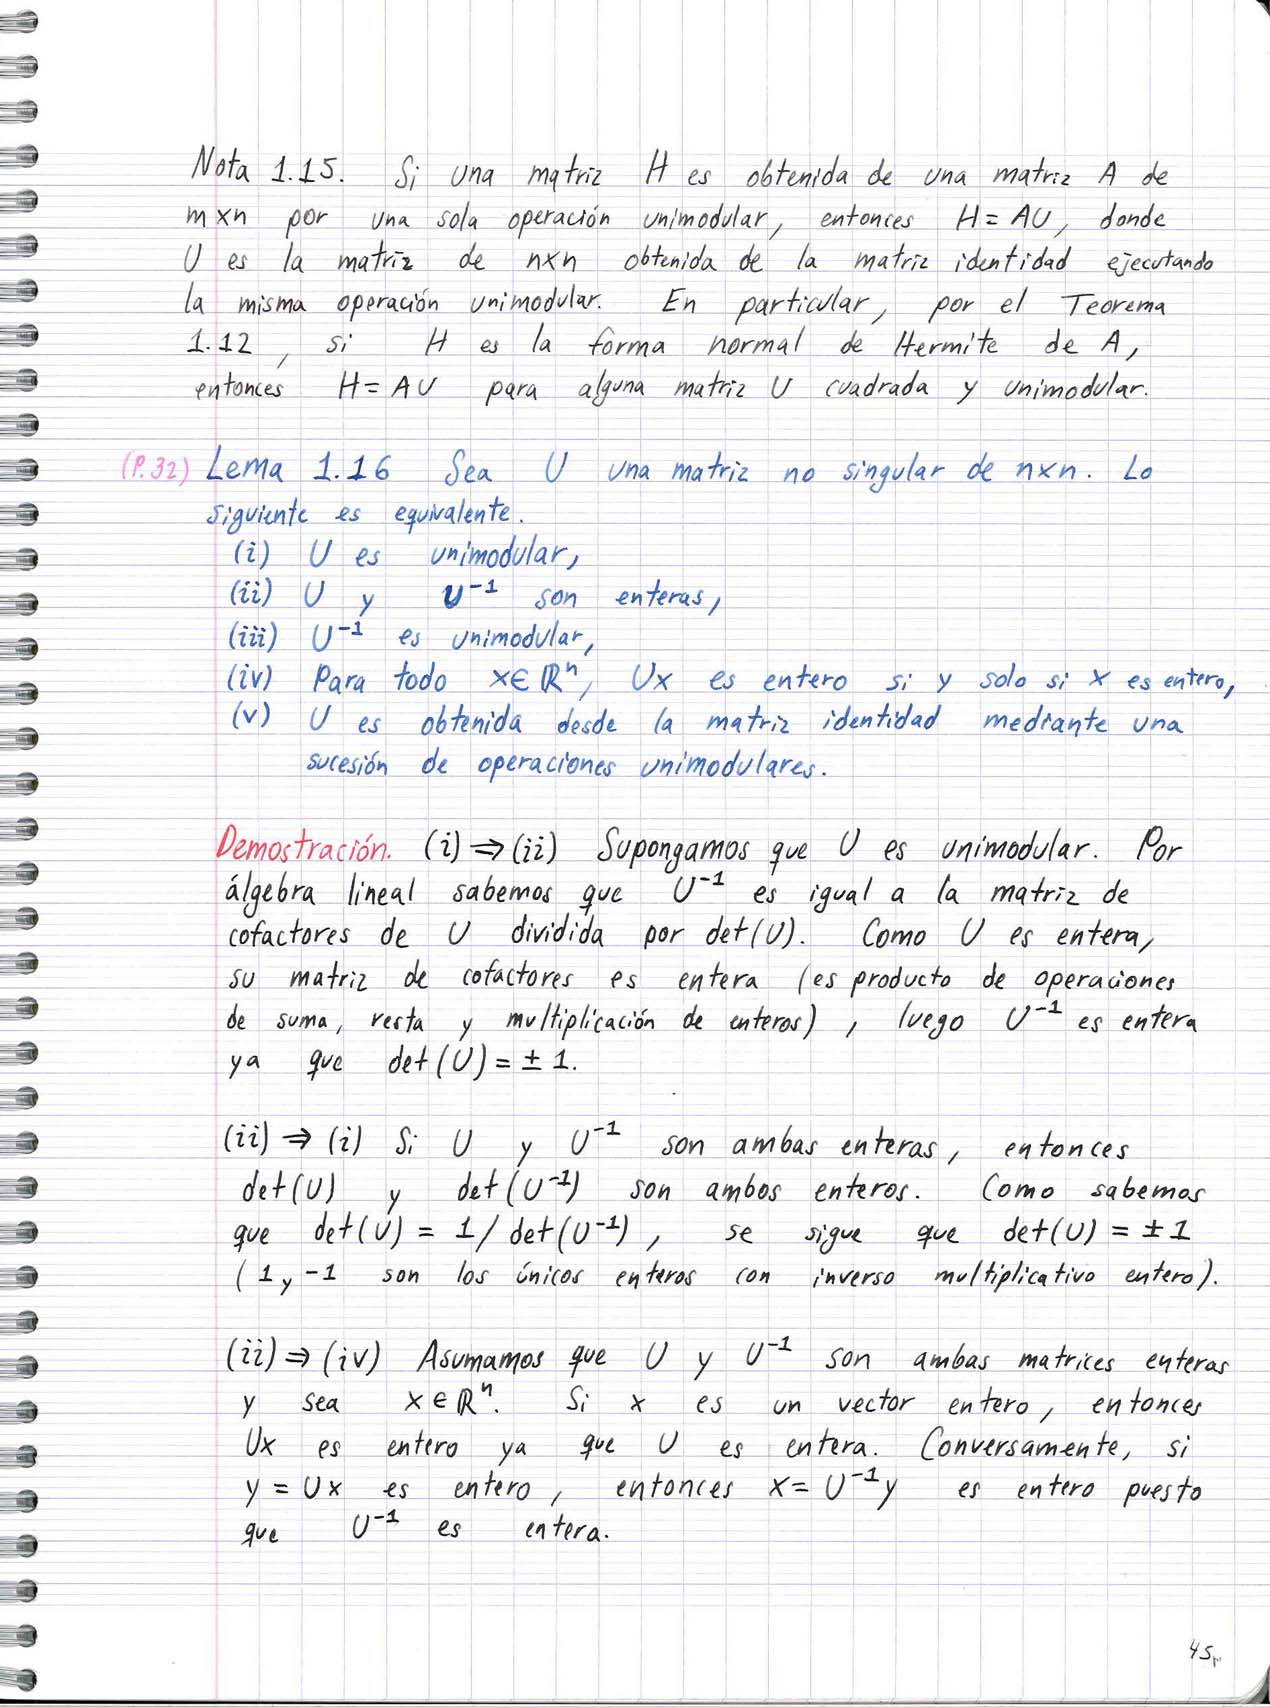 Nota 1.15. Si una matriz H es obtenida de una matriz A de
m×n por una sola operación unimodular, entonces H = AU, donde
U es la matriz de n×n obtenida de la matriz identidad ejecutando
la misma operación unimodular. En particular, por el Teorema
1.12, si H es la forma normal de Hermite de A,
entonces H = AU para alguna matriz U cuadrada y unimodular.
(P.32) Lema 1.16 Sea U una matriz no singular de n×n. Lo
siguiente es equivalente.
(i) U es unimodular,
(ii) U y U⁻¹ son enteras,
(iii) U⁻¹ es unimodular,
(iv) Para todo x∈ℝⁿ, Ux es entero si y solo si x es entero,
(v) U es obtenida desde la matriz identidad mediante una
sucesión de operaciones unimodulares.
Demostración. (i) ⇒ (ii) Supongamos que U es unimodular. Por
álgebra lineal sabemos que U⁻¹ es igual a la matriz de
cofactores de U dividida por det(U). Como U es entera,
su matriz de cofactores es entera (es producto de operaciones
de suma, resta y multiplicación de enteros), luego U⁻¹ es entera
ya que det(U) = ± 1.
(ii) ⇒ (i) Si U y U⁻¹ son ambas enteras, entonces
det(U) y det(U⁻¹) son ambos enteros. Como sabemos
que det(U) = 1/det(U⁻¹), se sigue que det(U) = ±1
(1 y -1 son los únicos enteros con inverso multiplicativo entero).
(ii) ⇒ (iv) Asumamos que U y U⁻¹ son ambas matrices enteras
y sea x∈ℝⁿ. Si x es un vector entero, entonces
Ux es entero ya que U es entera. Conversamente, si
y = Ux es entero, entonces x = U⁻¹y es entero puesto
que U⁻¹ es entera.
45